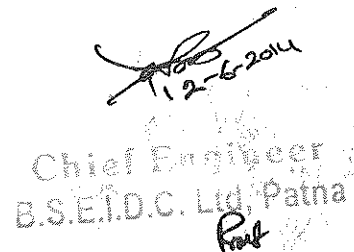 12-6-2014
Chief Engineer
B.S.E.I.D.C. Ltd, Patna